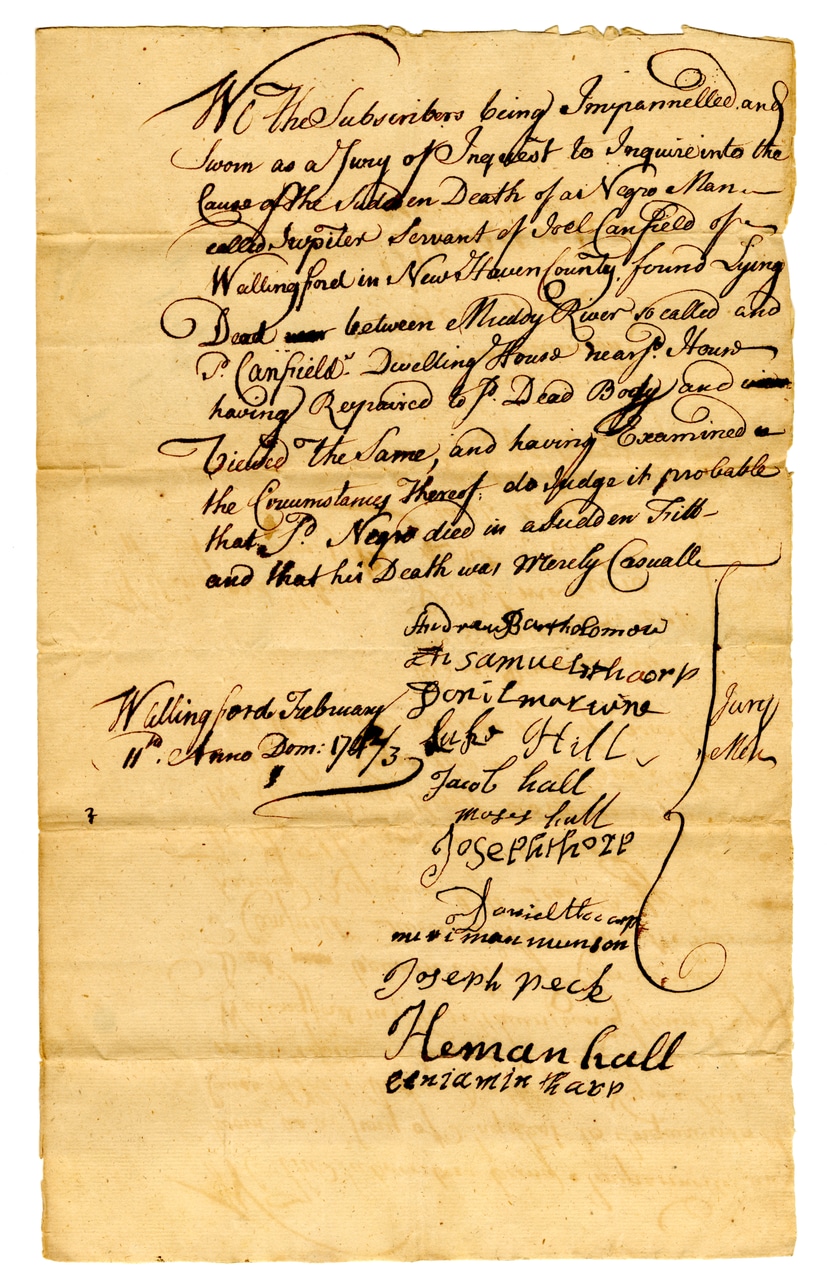 We The Subscribers being Impannelled and
Sworn as a Jury of Inquest to Inquire into the
Cause of the Sudden Death of a Negro Man
called Jupiter Servant of Joel Canfield of
Wallingford in New Haven County, found Lying
Dead between Muddy River so called and
Sd. Canfields Dwelling House near sd. House
having Repaired to sd. Dead Body and
Viewed the Same, and having Examined
the Circumstances Thereof: do Judge it probable
that Sd. Negro died in a Sudden Fitt
and that his Death was Merely Casuall
Andrew Bartholomew
Samuel thorp
Wallingford February
11th. Anno Dom: 176 /3
Luke Hill
Jacob hall
moses hall
Joseph thorp
Daniel thorp
meriman munson
Joseph peck
Heman hall
Beniamin tharp
Jury
Men